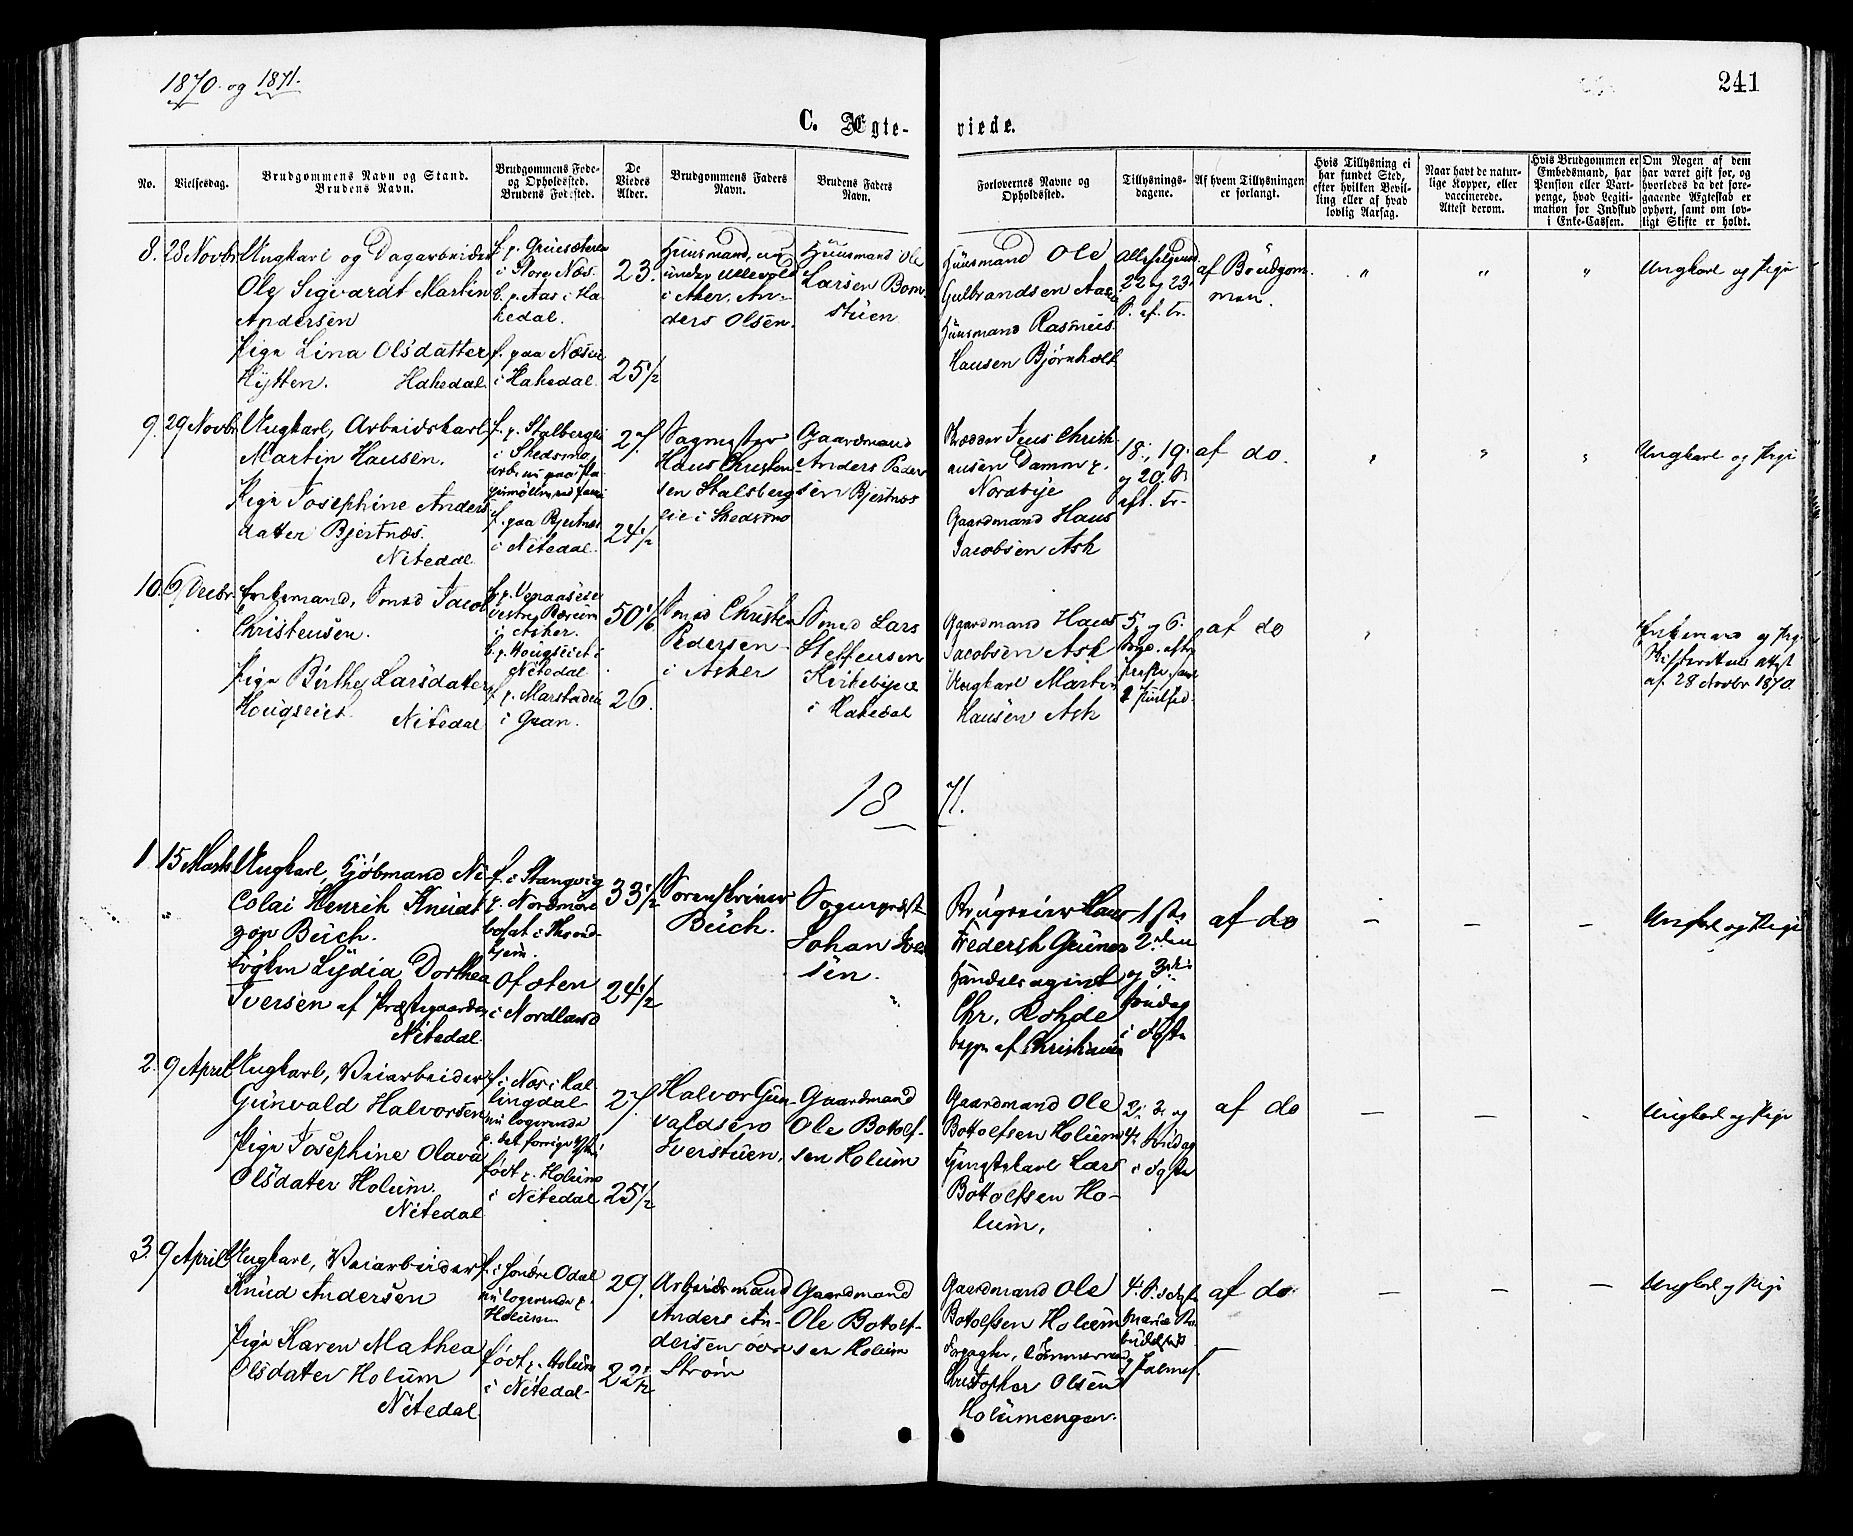 1870. og 1871.
241
C. Ægte-
viede.
No.
Vielsesdag.
Brudgommens Navn og Stand.
Brudens Navn.
Brudgommens Føde-
og Opholdssted.
Brudens Fødested.
De
Viedes
Alder.
Brudgommens Faders
Navn.
Brudens Faders
Navn.
Forlovernes Navne og
Opholdssted.
Tillysnings-
dagene.
Af hvem Tillysningen
er forlangt.
Hvis Tillysning ei
har fundet Sted,
efter hvilken Bevil-
ling eller af hvad
lovlig Aarsag.
Naar havt de natur-
lige Kopper, eller
vaccinerede.
Attest derom.
Hvis Brudgommen er
Embedsmand, har
Pension eller Vart-
penge, hvad Legiti-
mation for Indskud
i Enke-Cassen.
Om Nogen af dem
har været gift før, og
hvorledes da det fore-
gaaende Ægteskab er
ophørt, samt om lov-
ligt Skifte er holdt.
8. 28 Novbr
Ungkarl og Dagarbeider
Ole Sigvardt Martin
Andersen
Pige Lina Olsdatter
Hytten. Hakedal.
i Store Næs.
b. p. Aas i Ha-
kedal.
f. paa Næsvi
i Hakedal.
23.
25 1/2
Huusmand, nu
under Ullevold
i Aker, An-
ders Olsen.
Huusmand Ole
Larsen Bom-
stuen
Huusmand Ole
Gulbrandsen Aas
Huusmand Rasmus
Hansen Bjørnholt
22 og 23
S. af. Tr.
af Brudgom-
men.
" " "
Ungkarl og Pige
9. 29 Novbr
Ungkarl, Arbeidskarl
Martin Hansen.
Pige Josephine Anders
datter Bjertnæs.
Nitedal.
i Skedsmo
f. paa Bjertnæs
i Nitedal.
27.
24 1/2
Hans Christen-
sen Stalsberg-
eie i Skedsmo
Gaardmand
Anders Peder
sen Bjertnæs
Skrædder Jens Christi
ansen Damm p.
Nordbye
Gaardmand Hans
Jacobsen Ask
18., 19.
og 20. S.
eft. Tr.
af do.
" " "
Ungkarl og Pige
10. 6 Decbr.
Enkemand, Smed Jacob
Christensen.
Pige Birthe Larsdatter
Hougseiet. Nitedal
Vestre Bærum
i Asker.
b. p. Hougseiet i
Nitedal
i Gran.
50 1/6
26.
Smed Christen
Pedersen
i Asker
Smed Lars
Steffensen
Kirkebyeie
i Hakedal
Gaardmand Hans
Jacobsen Ask
Ungkarl Martin
Hansen Ask
5. og 6.
af do
Enkemand og Pige
Skifterettens attest
af 28 Novbr 1870.
18 71.
1 15 Marts
Ungkarl, Kjøbmand Ni-
colai Henrik Knudt
zon Buch.
Frøken Lydia Dorthea
Iversen af Præstegaarden
Nitedal.
f. i Stangvig
p. Nordmøre
bosat i Thrond-
hjem.
Ofoten
i Nordland
33 1/2
24 1/2
Sorenskriver
Buch.
Sognepræst
Johan Iver
sen.
Brugseier Hans
Frederik Gruner
Handelsagent
Chr. Rohde
begge af Christiania
1ste
2den
og 3die
Søndag
i Faste
af do
– – –
Ungkarl og Pige
2. 9 April
Ungkarl, Veiarbeider
Gunvald Halvorsen
Pige Josephine Olava
Olsdatter Holum.
Nitedal
f. i Næs i Hal
lingdal
nu logerende
født p. Holum
i Nitedal
27.
25 1/2
Halvor Gun-
valdsen
Iverstuen.
Gaardmand
Ole Bottolf-
sen Holum
Gaardmand Ole
Bottolfsen Holum
Bottolfsen Ho-
lum.
2, 3 og
4 Søndag
i Faste
af do
– – -
Ungkarl og Pige
3. 9 April
Ungkarl, Veiarbeider
Knud Andersen
Pige Karen Mathea
Olsdatter Holum
Nitedal
f. i Søndre Odal
nu logerende p.
Holum
født p. Holum
i Nitedal
29.
22 1/2
Arbeidsmand
Anders An-
dersen
Strøm
Gaardmand
Ole Bottolf-
sen Holum
Gaardmand Ole
Bottolfsen Holum
Christopher Olsen
Holumengen.
af do
– – –
Ungkarl og Pige